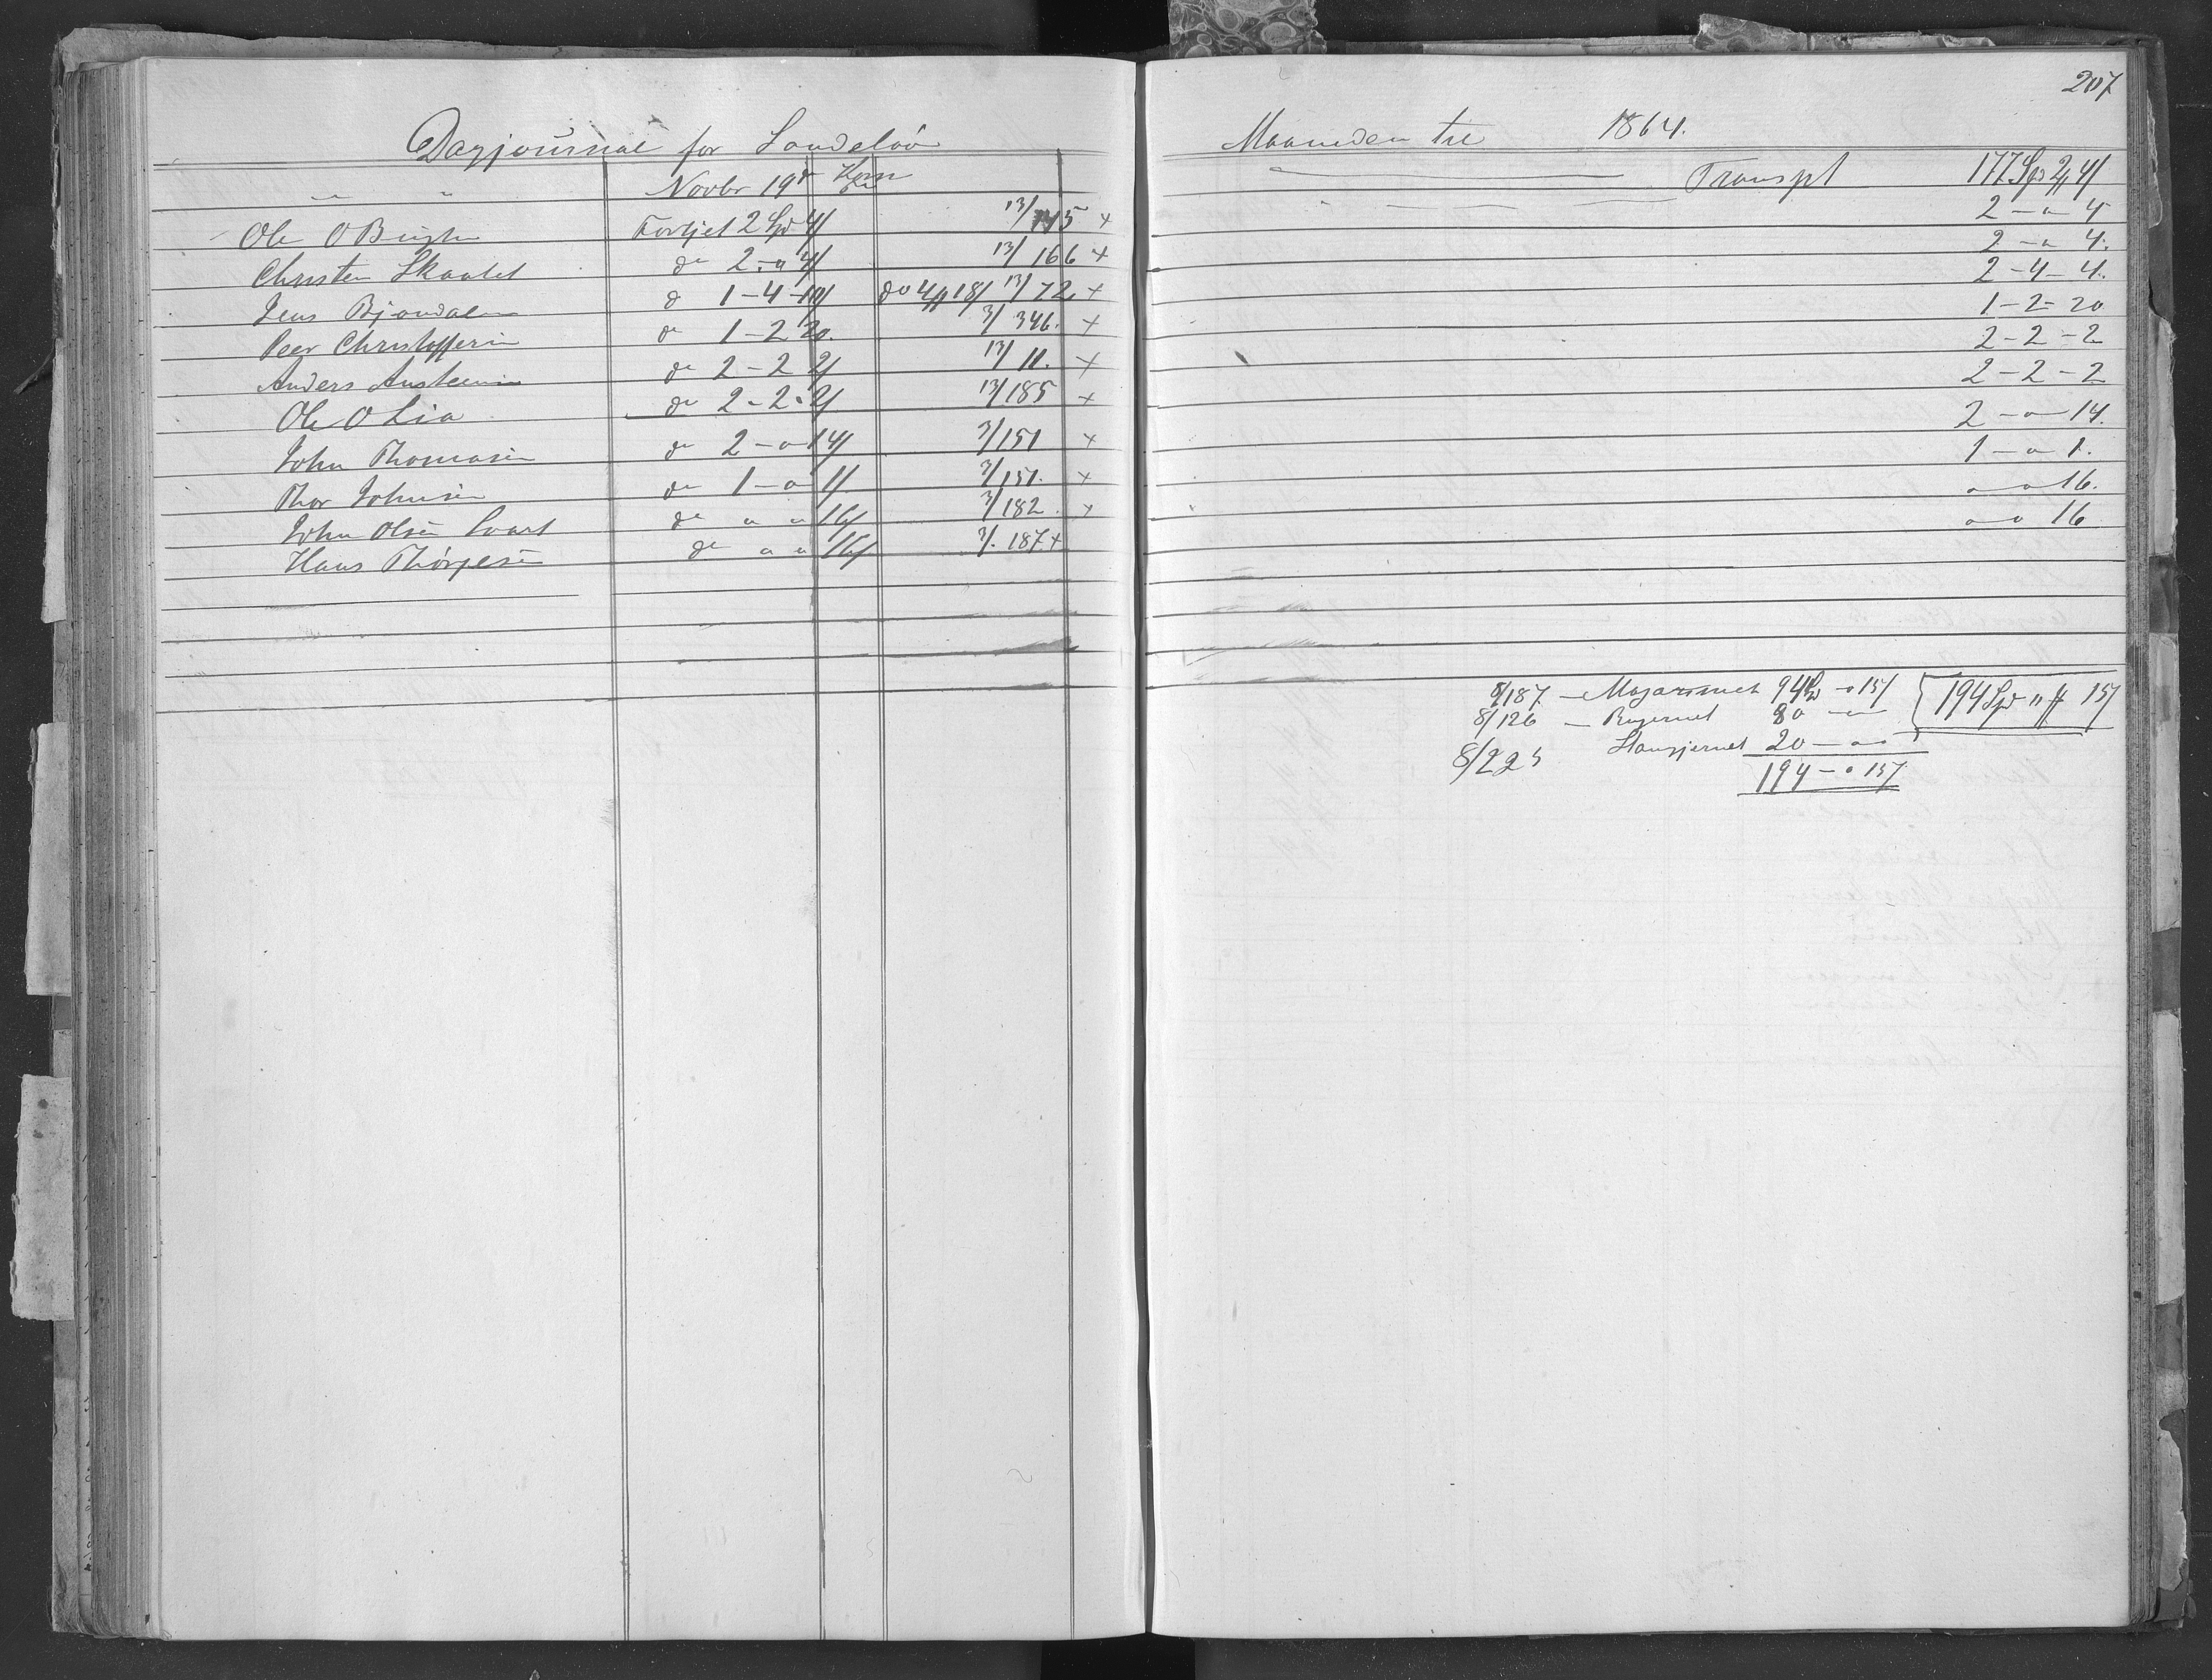 207
Dagjournal for Sandelöv
Maaneden til 1864.
" " Novbr 19de Korn
Transpt 177 Spd 2 4/
Ole O Bugten Fortjet 2 Spd 4/ 13/145 +
2 - " 4
Christen Skaatet do 2 - " 4/ 13/166 +
2 - " 4.
Jens Bjondalen do 1 - 4 - 10/ do 4 18/ 13/72 +
2 - 4 - 4.
Peer Christoffersen do 1 - 2 20. 3/346. +
1 - 2 - 20
Anders Austensen do 2 - 2 2/ 13/11. +
2 - 2 - 2
Ole O Lia do 2 - 2 - 2/ 13/185 +
2 - 2 - 2
John Thomasen do 2 - " 14/ 3/151 +
2 - " 14.
Thor Johnsen do 1 - " 1/ 3/151. +
1 - " 1.
John Olsen Svart do " " 16/ 3/182. +
" " 16.
Hans Thørgesen do " " 16/ 3/187. +
" " 16
8/187 - Magasinet 94 Spd " 15/ 194 Spd " 15/
8/126 - Bugernet 80 - "
8/225 Stangjernet 20 - " "
194 - " 15/